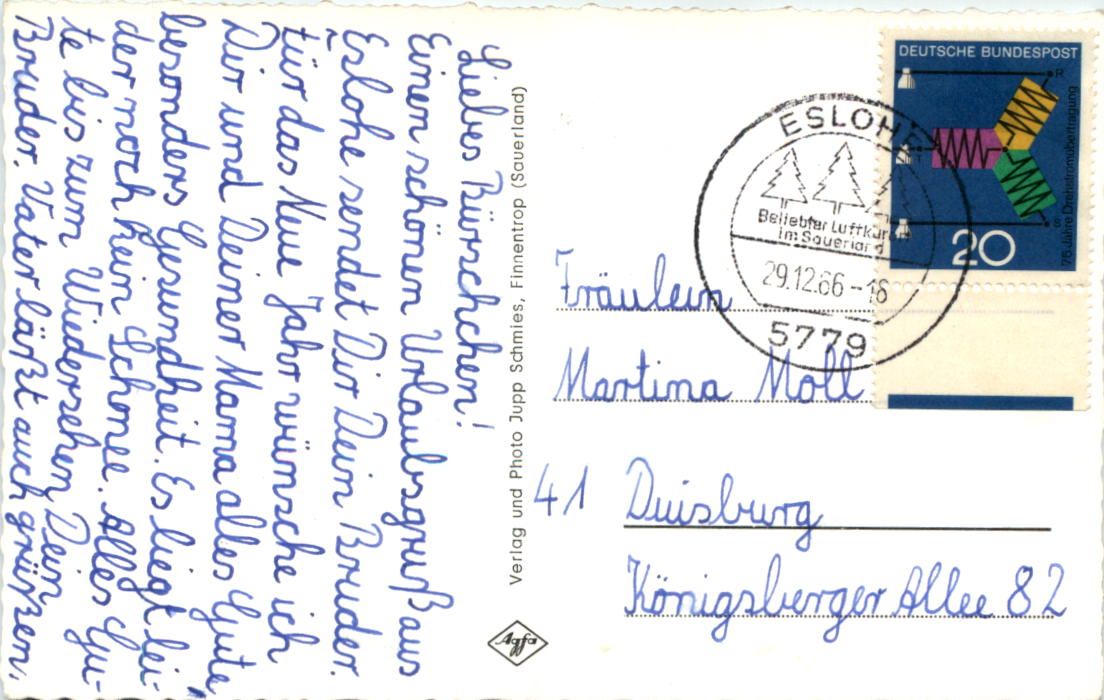 Liebes Bürschchen!
Einen schönen Urlaubsgruß aus
Eslohe sendet Dir Dein Bruder.
Für das Neue Jahr wünsche ich
Dir und Deiner Mama alles Gute,
besonders Gesundheit. Es liegt lei-
der noch kein Schnee. Alles Gu-
te bis zum Wiedersehen, Dein
Bruder. Vater läßt auch grüßen.
Verlag und Photo Jupp Schmies, Finnentrop (Sauerland)
Agfa
DEUTSCHE BUNDESPOST
R
T
S
75 Jahre Drehstromübertragung
20
ESLOHE
Beliebter Luftkuro
im Sauerland
29.12.66-16
5779
Fräulein
Martina Moll
41 Duisburg
Königsberger Allee 82